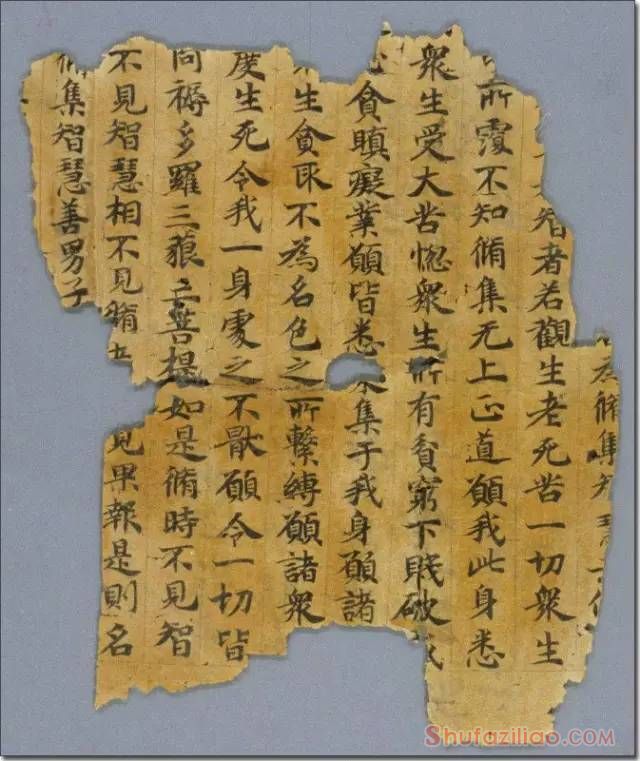 為脩集智慧
智者若觀生老死苦一切衆生
所覆不知脩集无上正道願我此身悉
衆生受大苦惱衆生所有貧窮下賤破
貪瞋癡業願皆悉來集于我身願諸
生貪取不為名色之所繫縛願諸衆
度生死令我一身處之不猒願令一切皆
阿耨多羅三藐三菩提如是脩時不見智
不見智慧相不見脩 見果報是則名
脩集智慧善男子
Shufaziliao.com